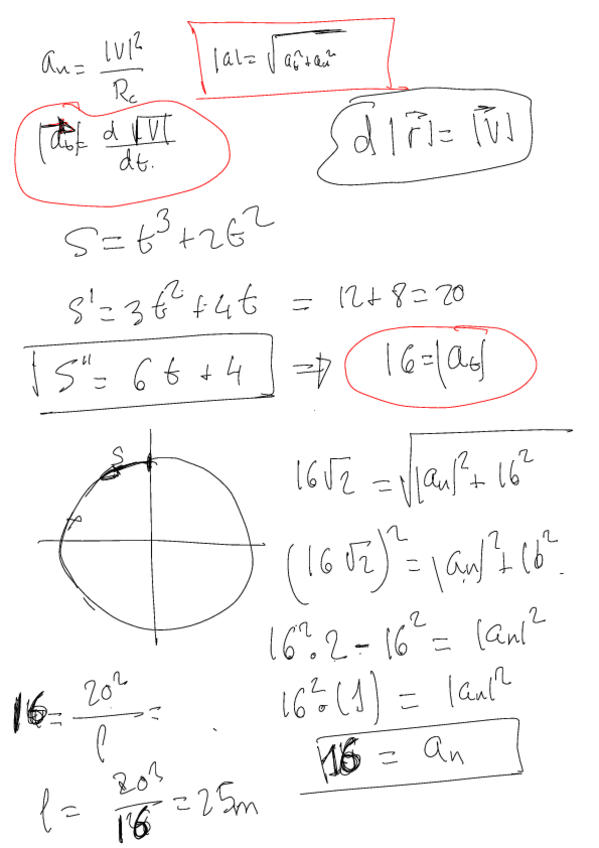 aₙ = |V|² / R_c
|a| = √(a_t² + aₙ²)
|a⃗_t| = d |V| / dt.
d |r⃗| = |V⃗|
S = t³ + 2t²
S' = 3t² + 4t = 12 + 8 = 20
S" = 6t + 4 ⇒ 16 = |a_t|
S
16√2 = √(|aₙ|² + 16²)
(16√2)² = |aₙ|² + 16².
16².2 - 16² = |aₙ|²
16 = 20² / ρ =
16².(1) = |aₙ|²
16 = aₙ
ρ = 20² / 16 = 25m